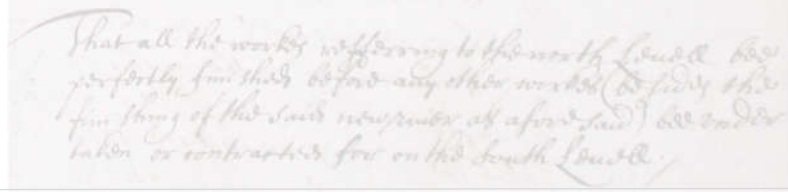 That all the workes refferring to the north Levell bee
perfectly finished before any other workes (besides the
finishing of the said new river as aforesaid) bee under
taken or contracted for on the South Levell.